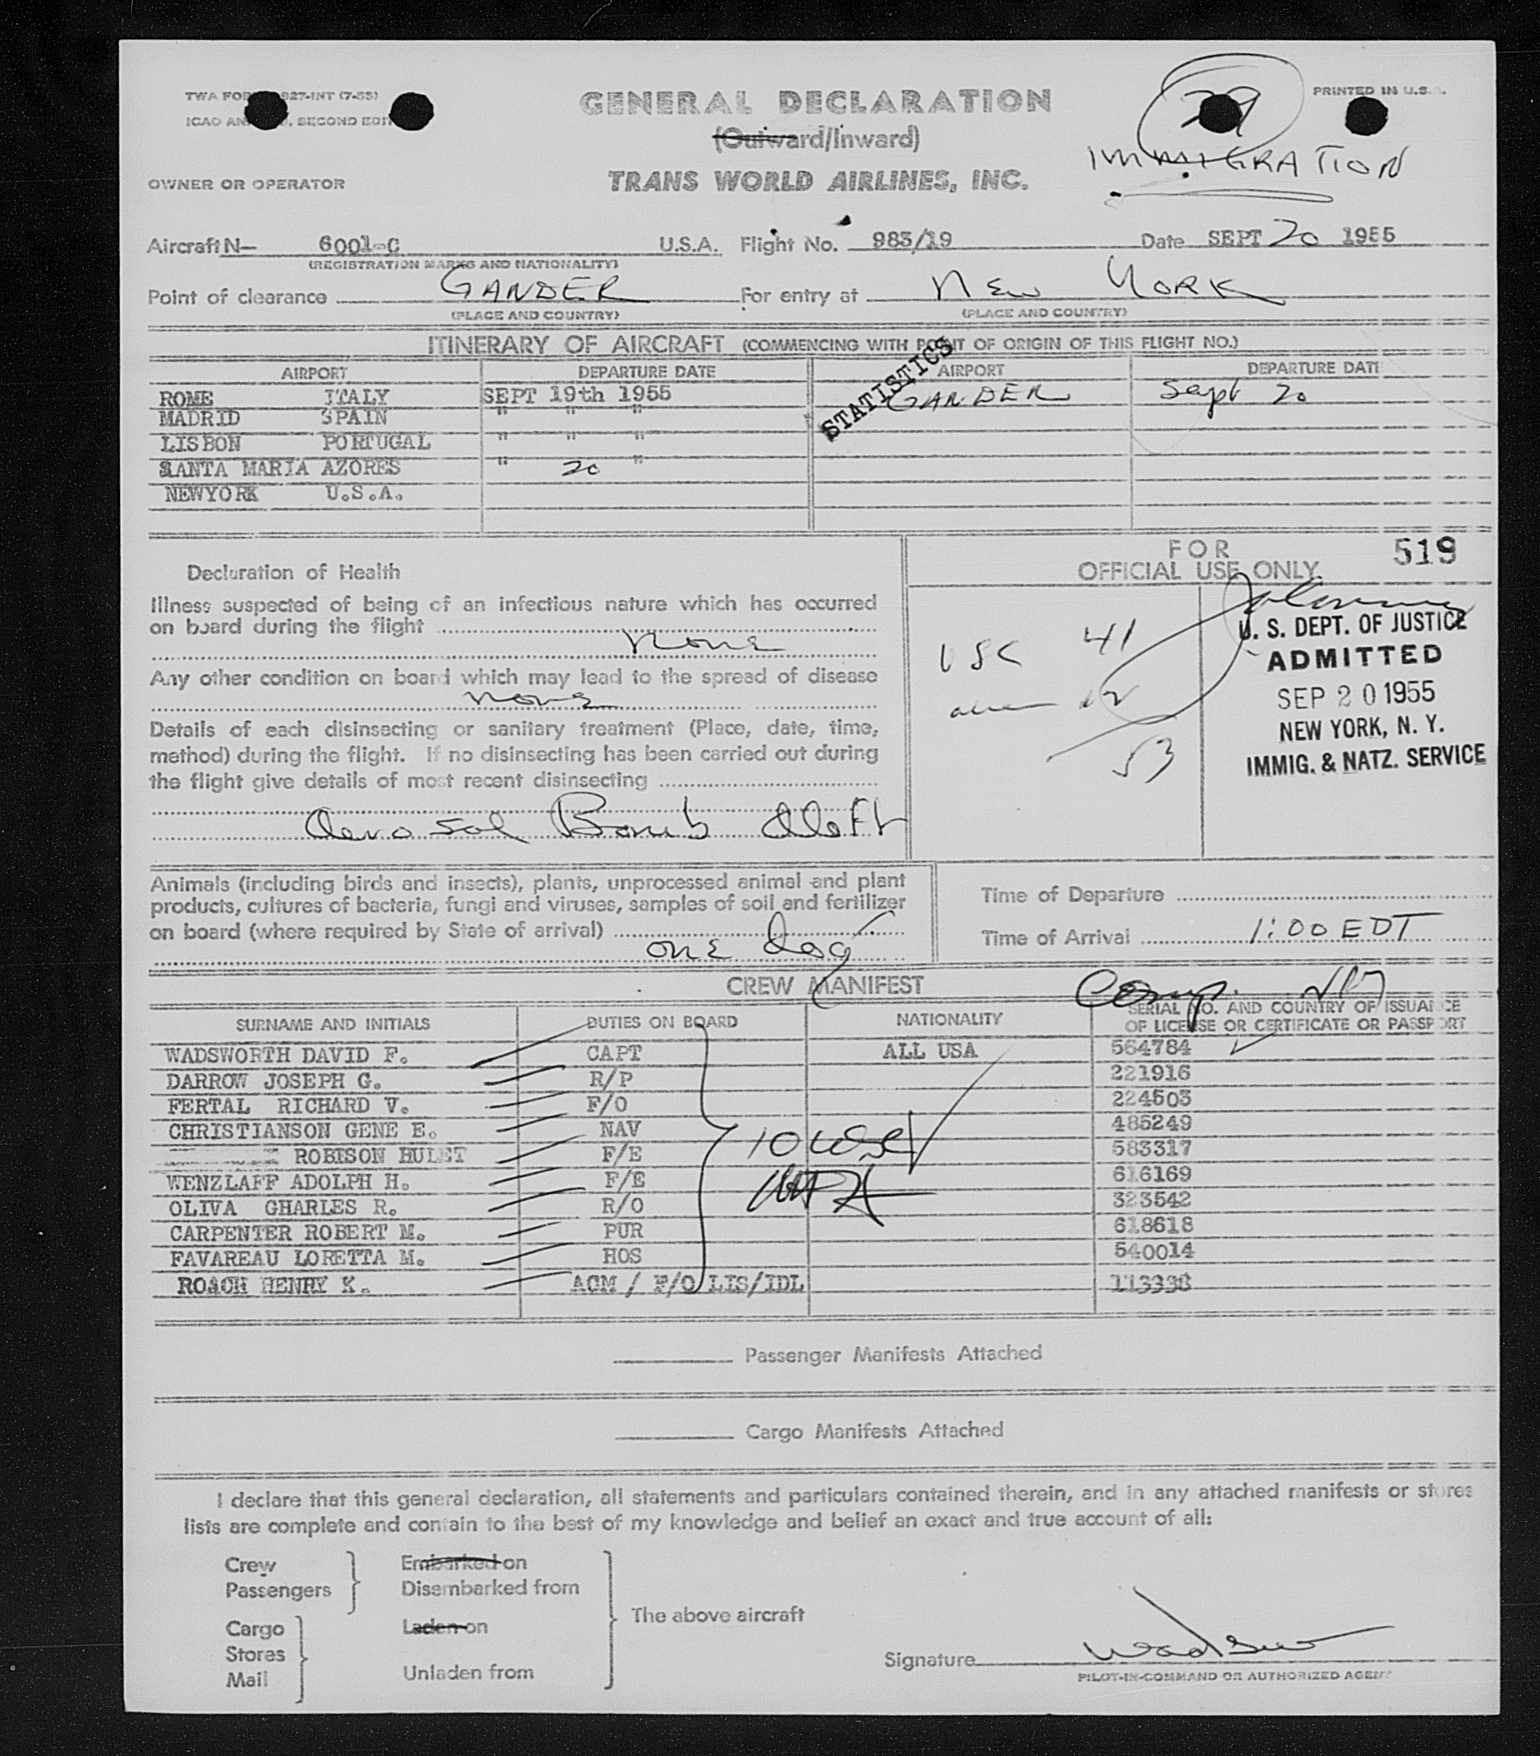 TWA FOR 827-INT (7-55)
PRINTED IN U.S.A.
ICAO AN , SECOND EDIT
29
IMMIGRATION
GENERAL DECLARATION
(Outward/Inward)
TRANS WORLD AIRLINES, INC.
OWNER OR OPERATOR
Aircraft N- 6001-C U.S.A. Flight No. 983/19 Date SEPT 20 1955
(REGISTRATION MARKS AND NATIONALITY)
Point of clearance GANDER For entry at NEW YORK
(PLACE AND COUNTRY) (PLACE AND COUNTRY)
ITINERARY OF AIRCRAFT (COMMENCING WITH POINT OF ORIGIN OF THIS FLIGHT NO.)
STATISTICS
AIRPORT DEPARTURE DATE AIRPORT DEPARTURE DATE
ROME ITALY SEPT 19th 1955 GANDER Sept 20
MADRID SPAIN " " "
LISBON PORTUGAL " " "
SANTA MARIA AZORES " 20 "
NEWYORK U.S.A.
FOR
OFFICIAL USE ONLY.
519
Declaration of Health
Illness suspected of being of an infectious nature which has occurred
on board during the flight
none
Any other condition on board which may lead to the spread of disease
none
Details of each disinsecting or sanitary treatment (Place, date, time,
method) during the flight. If no disinsecting has been carried out during
the flight give details of most recent disinsecting
Aerosol Bomb
USC 41
alien 12
53
U. S. DEPT. OF JUSTICE
ADMITTED
SEP 20 1955
NEW YORK, N. Y.
IMMIG. & NATZ. SERVICE
Animals (including birds and insects), plants, unprocessed animal and plant
products, cultures of bacteria, fungi and viruses, samples of soil and fertilizer
on board (where required by State of arrival)
one dog
Time of Departure
Time of Arrival 1:00 EDT
CREW MANIFEST
Comp.
SURNAME AND INITIALS DUTIES ON BOARD NATIONALITY SERIAL NO. AND COUNTRY OF ISSUANCE
OF LICENSE OR CERTIFICATE OR PASSPORT
WADSWORTH DAVID F. CAPT ALL USA 564784
DARROW JOSEPH G. R/P 221916
FERTAL RICHARD V. F/O 224503
CHRISTIANSON GENE E. NAV 485249
ROBISON HULET F/E 583317
WENZLAFF ADOLPH H. F/E 616169
OLIVA GHARLES R. R/O 323542
CARPENTER ROBERT M. PUR 618618
FAVAREAU LORETTA M. HOS 540014
ROACH HENRY K. ACM / F/O LIS/IDL 113338
10 USC
Passenger Manifests Attached
Cargo Manifests Attached
I declare that this general declaration, all statements and particulars contained therein, and in any attached manifests or stores
lists are complete and contain to the best of my knowledge and belief an exact and true account of all:
Crew
Passengers
Embarked on
Disembarked from
Cargo
Stores
Mail
Laden on
Unladen from
The above aircraft
Signature
PILOT-IN-COMMAND OR AUTHORIZED AGENT